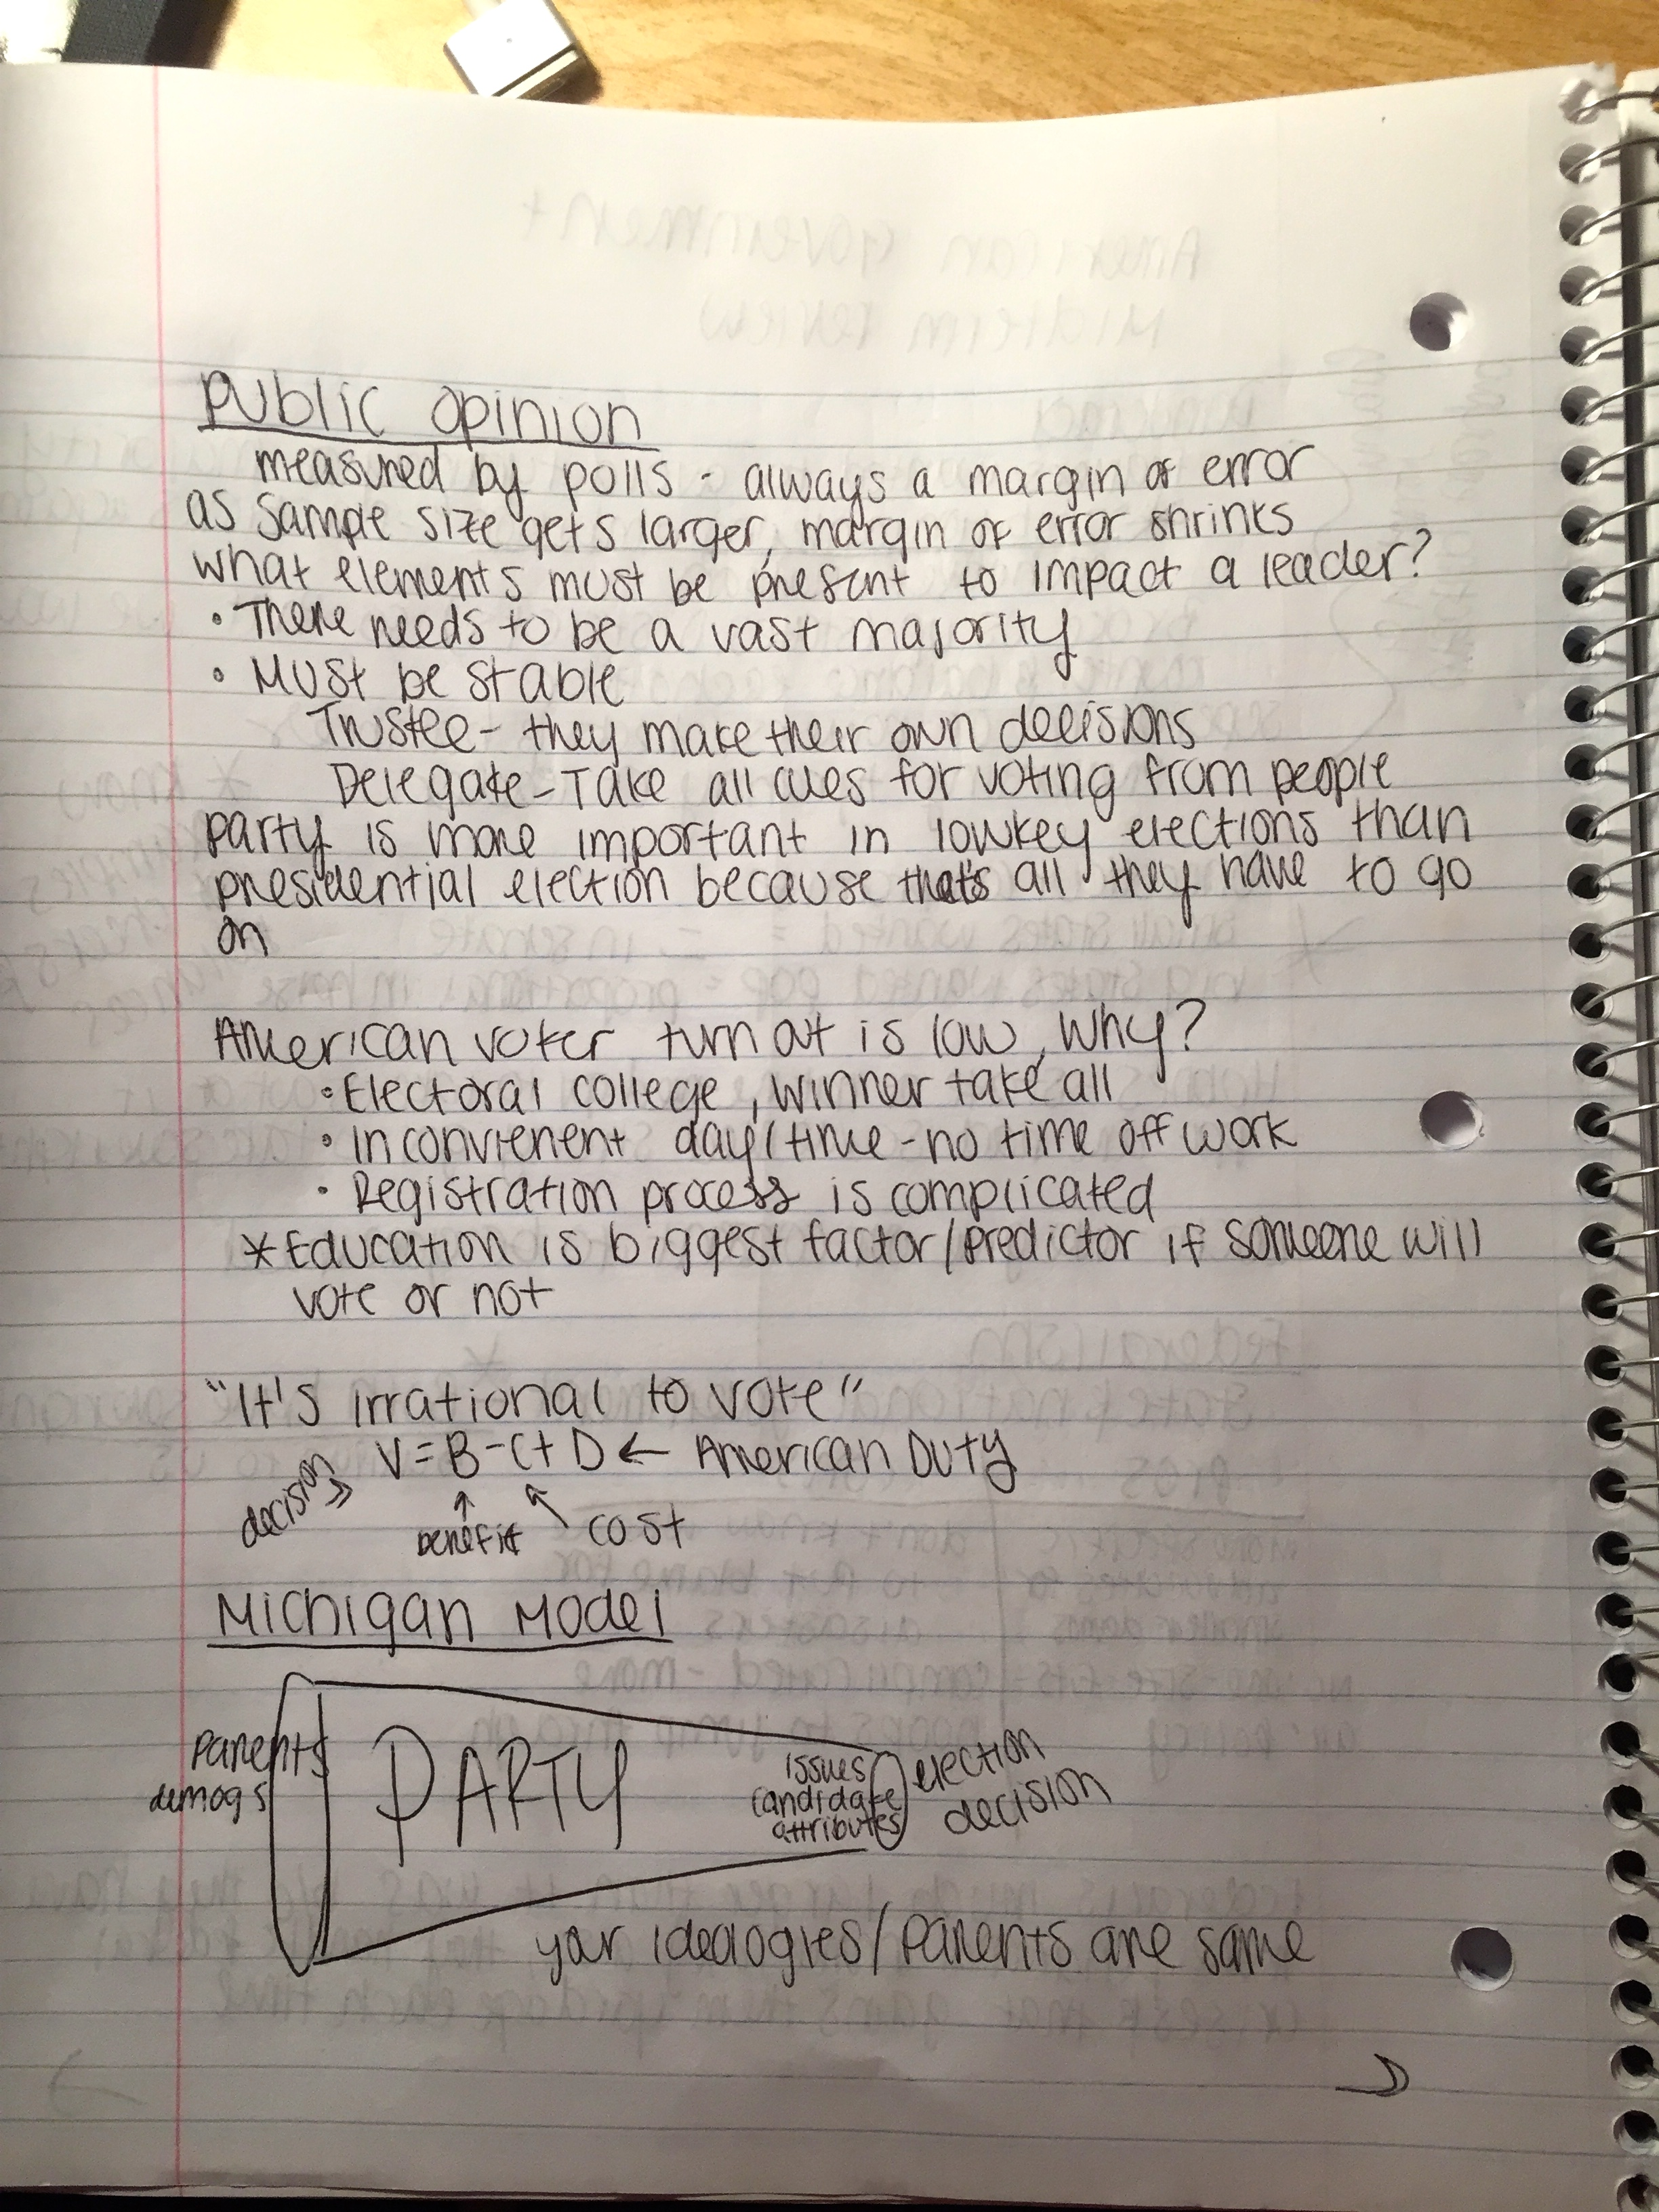 Public Opinion
measured by polls - always a margin of error
as sample size gets larger, margin of error shrinks
what elements must be present to impact a leader?
• There needs to be a vast majority
• Must be stable
Trustee - they make their own decisions
Delegate - Take all cues for voting from people
party is more important in lowkey elections than
presidential election because that's all they have to go
on
American voter turn out is low, Why?
• Electoral college, winner take all
• Inconvienent day/time - no time off work
• Registration process is complicated
* Education is biggest factor/predictor if someone will
vote or not
"It's irrational to vote"
V = B - C + D ← American Duty
decision
benefit
cost
Michigan Model
Parents
demogs
PARTY
issues
candidate
attributes
election
decision
your idealogies/Parents are same